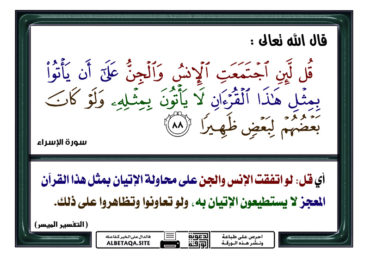 قال الله تعالى :
قُل لَّئِنِ ٱجْتَمَعَتِ ٱلْإِنسُ وَٱلْجِنُّ عَلَىٰٓ أَن يَأْتُوا۟
بِمِثْلِ هَـٰذَا ٱلْقُرْءَانِ لَا يَأْتُونَ بِمِثْلِهِۦ وَلَوْ كَانَ
بَعْضُهُمْ لِبَعْضٍ ظَهِيرًا ٨٨
سورة الإسراء
أي قل: لو اتفقت الإنس والجن على محاولة الإتيان بمثل هذا القرآن
المعجز لا يستطيعون الإتيان به، ولو تعاونوا وتظاهروا على ذلك.
(التفسير الميسر)
احرص على طباعة
ونشر هذه الورقة
فالدال على الخير كفاعله
ALBETAQA.SITE